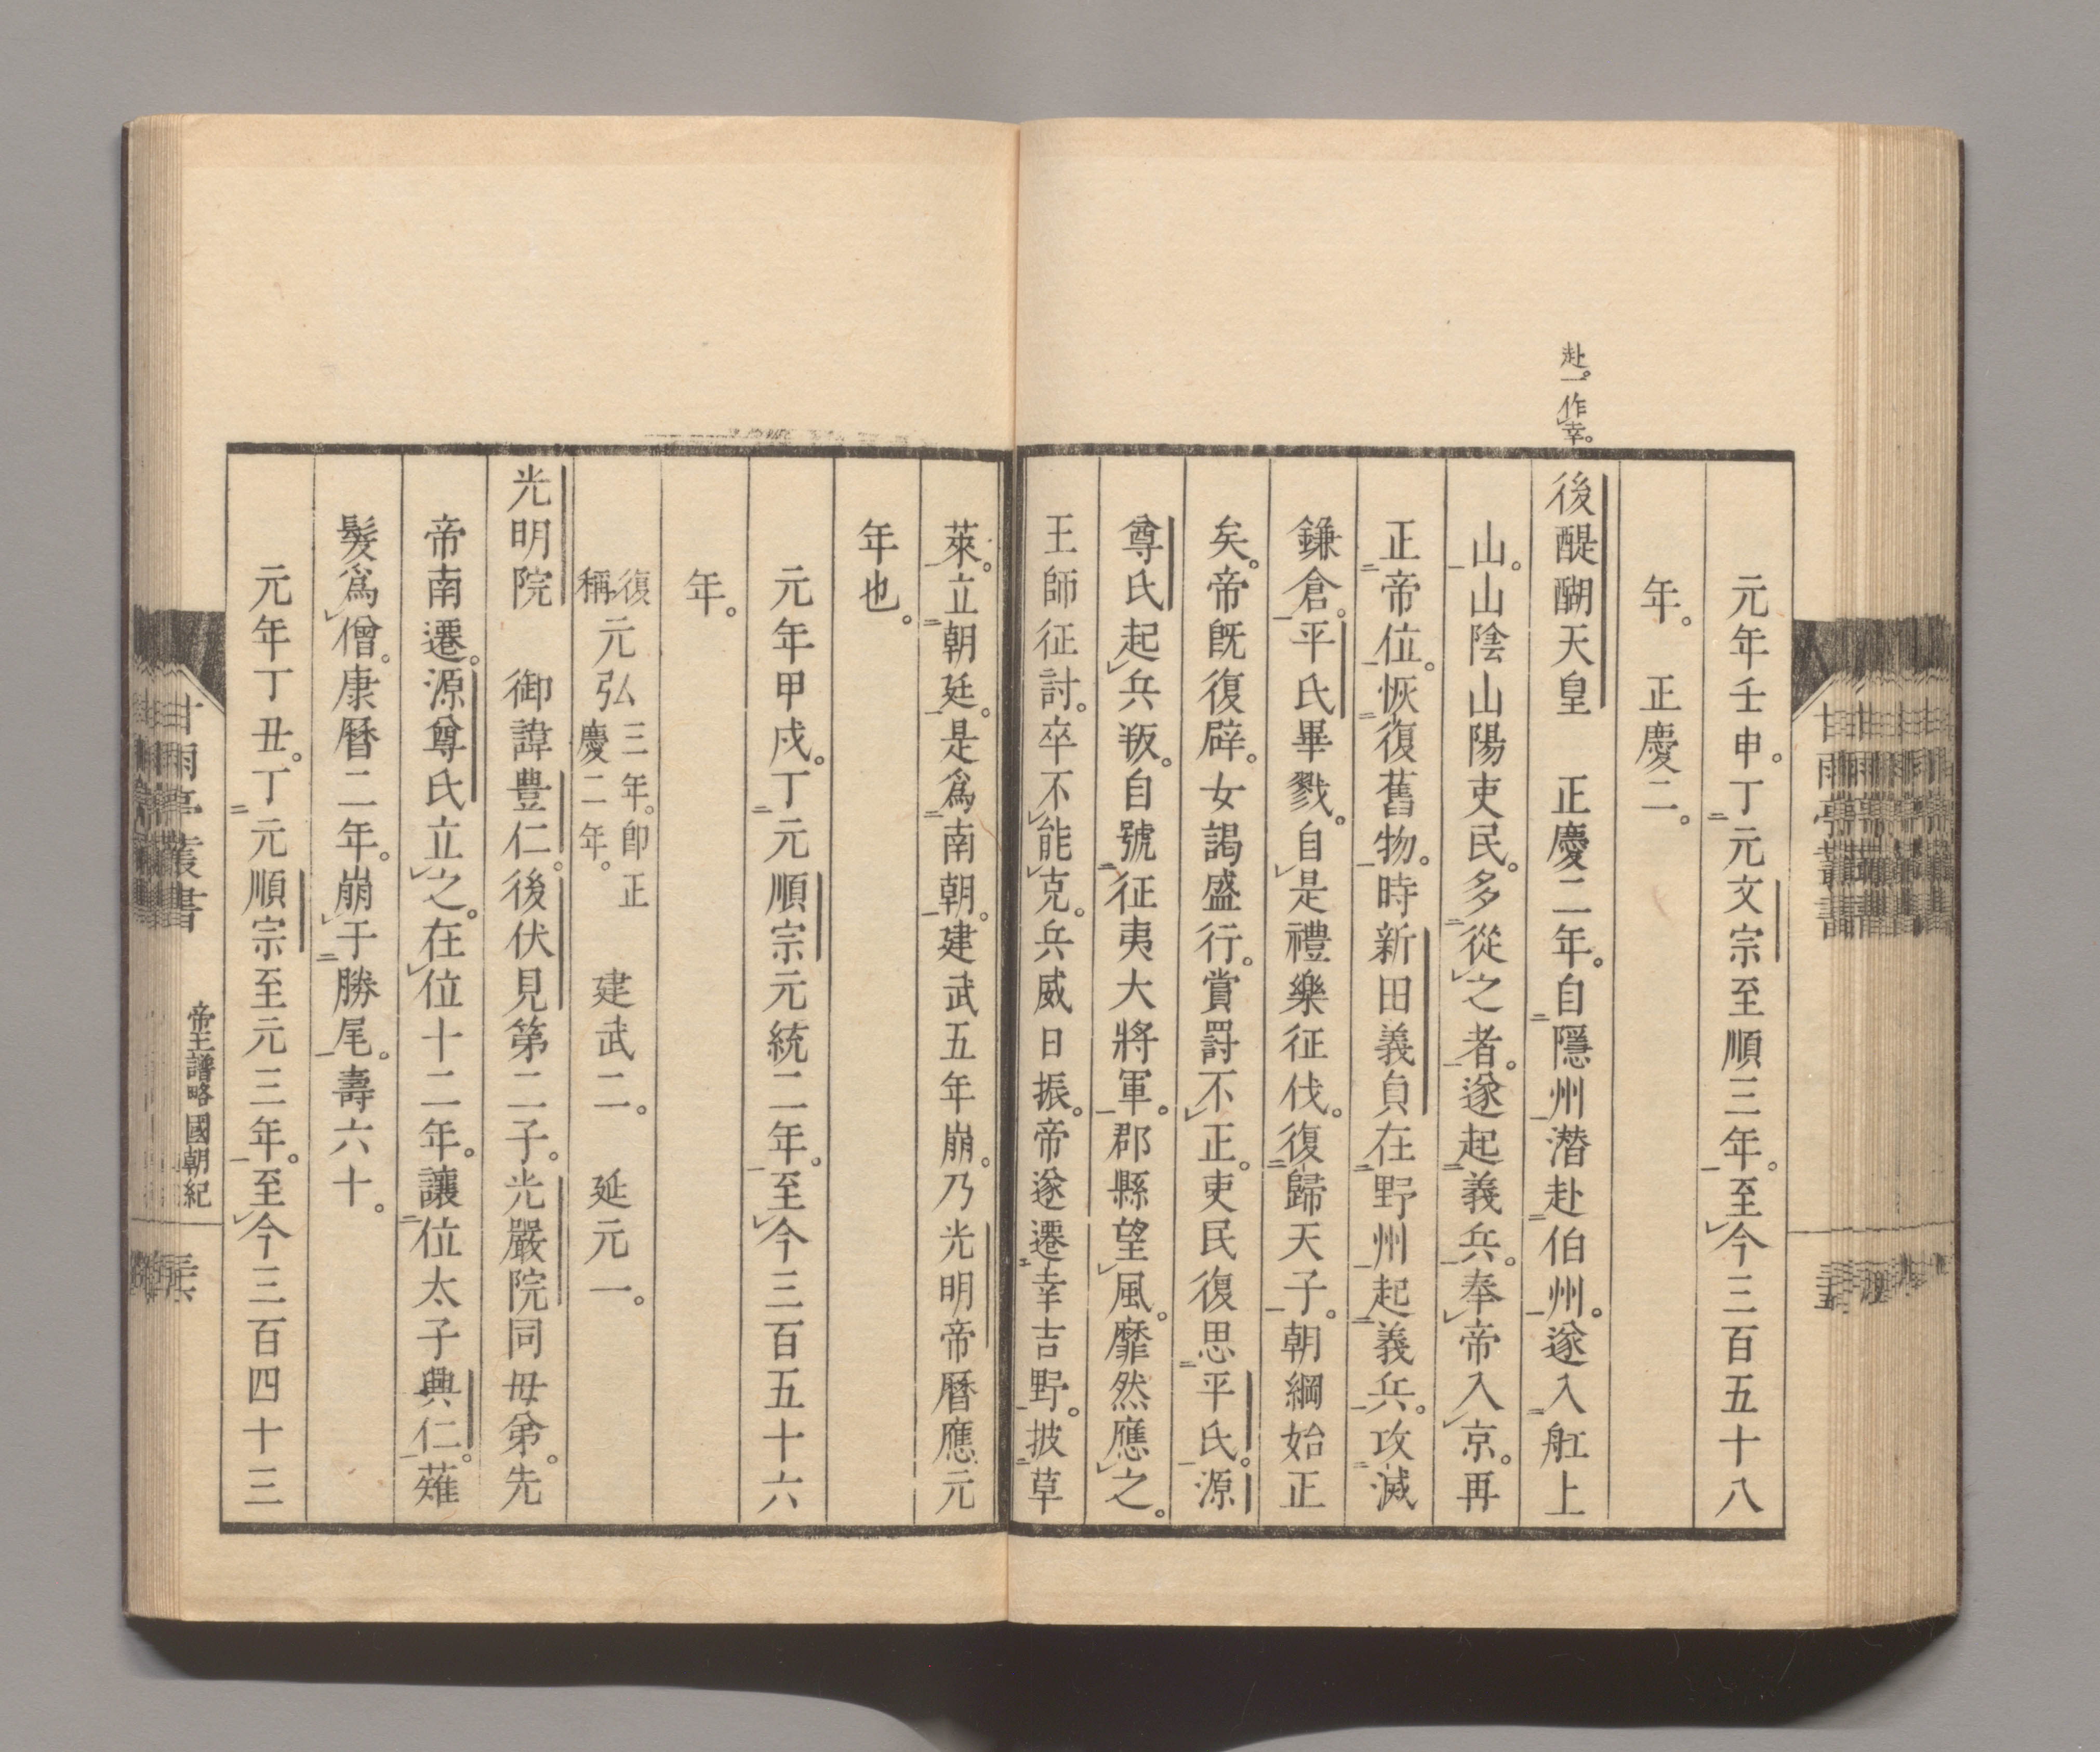 元年壬申。丁元文宗至順三年。至今三百五十八
年。 正慶二。
赴。一作幸。
後醍醐天皇 正慶二年。自隱州潛赴伯州。遂入舩上
山。山陰山陽吏民。多從之者。遂起義兵。奉帝入京。再
正帝位。恢復舊物。時新田義貞在野州起義兵。攻滅
鎌倉。平氏畢戮。自是禮樂征伐。復歸天子。朝綱始正
矣。帝既復辟。女謁盛行。賞罸不正。吏民復思平氏。源
尊氏起兵叛。自號征夷大將軍。郡縣望風。靡然應之。
王師征討。卒不能克。兵威日振。帝遂遷幸吉野。披草
萊。立朝廷。是爲南朝。建武五年崩。乃光明帝曆應元
年也。
元年甲戌。丁元順宗元統二年。至今三百五十六
年。
復稱元弘三年。卽正慶二年。 建武二。 延元一。
光明院 御諱豊仁。後伏見第二子。光嚴院同母弟。先
帝南遷。源尊氏立之。在位十二年。讓位太子興仁。薙
髮爲僧。康曆二年。崩于勝尾。壽六十。
元年丁丑。丁元順宗至元三年。至今三百四十三
甘雨亭叢書 帝王譜略國朝紀